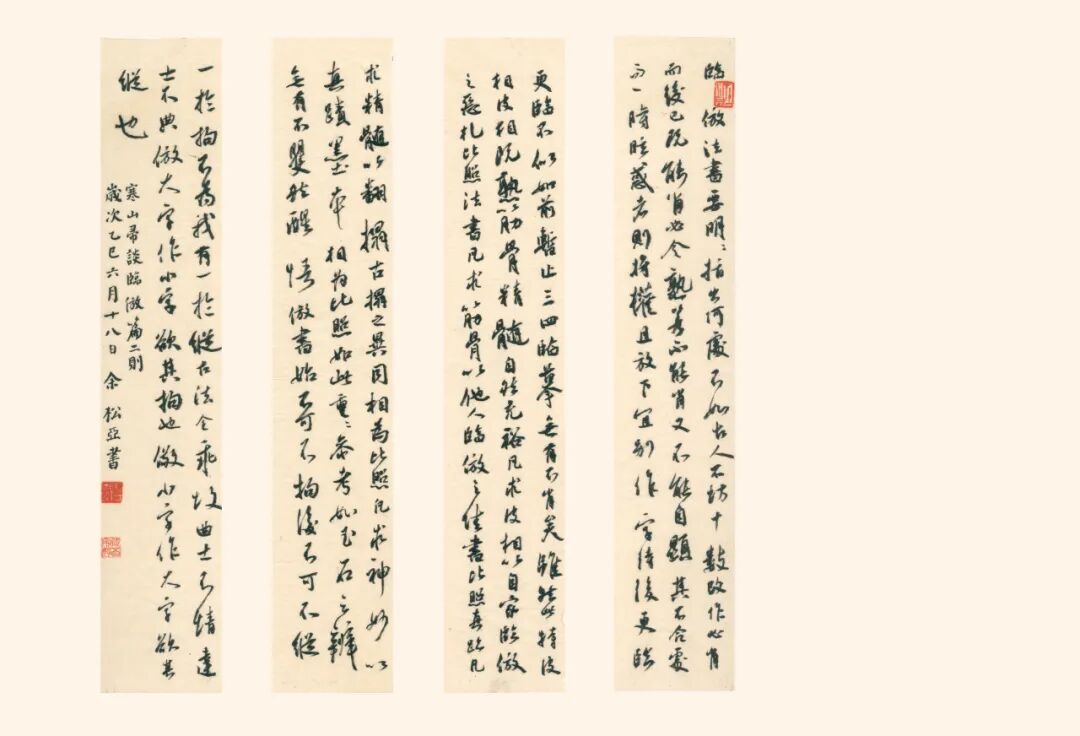 臨倣法書要明明指出何處不如古人不妨十數改作必肖
而後已既能肖必令熟若不能肖又不能自顯其不合處
而一時眩惑者則將權且放下宜別作一字待後更臨
更臨不似如前暫止三四臨摹無有不肖矣雖然此特皮
相皮相既熟筋骨精髓自然充裕凡求皮相以自家臨倣
之惡札比照法書凡求筋骨以他人臨倣之佳書比照真跡凡
求精髓以翻搨古搨之異同相為比照凡求神妙以
真蹟墨本相為比照如此重重參考如玉石之辨
無有不瞿然醒悟倣書始不可不拘後不可不縱
一於拘不為我有一於縱古法全乖故曲士不情達
士不典倣大字作小字欲其拘也倣小字作大字欲其
縱也
寒山帚談臨倣篇二則
歲次乙巳六月十八日余松亞書